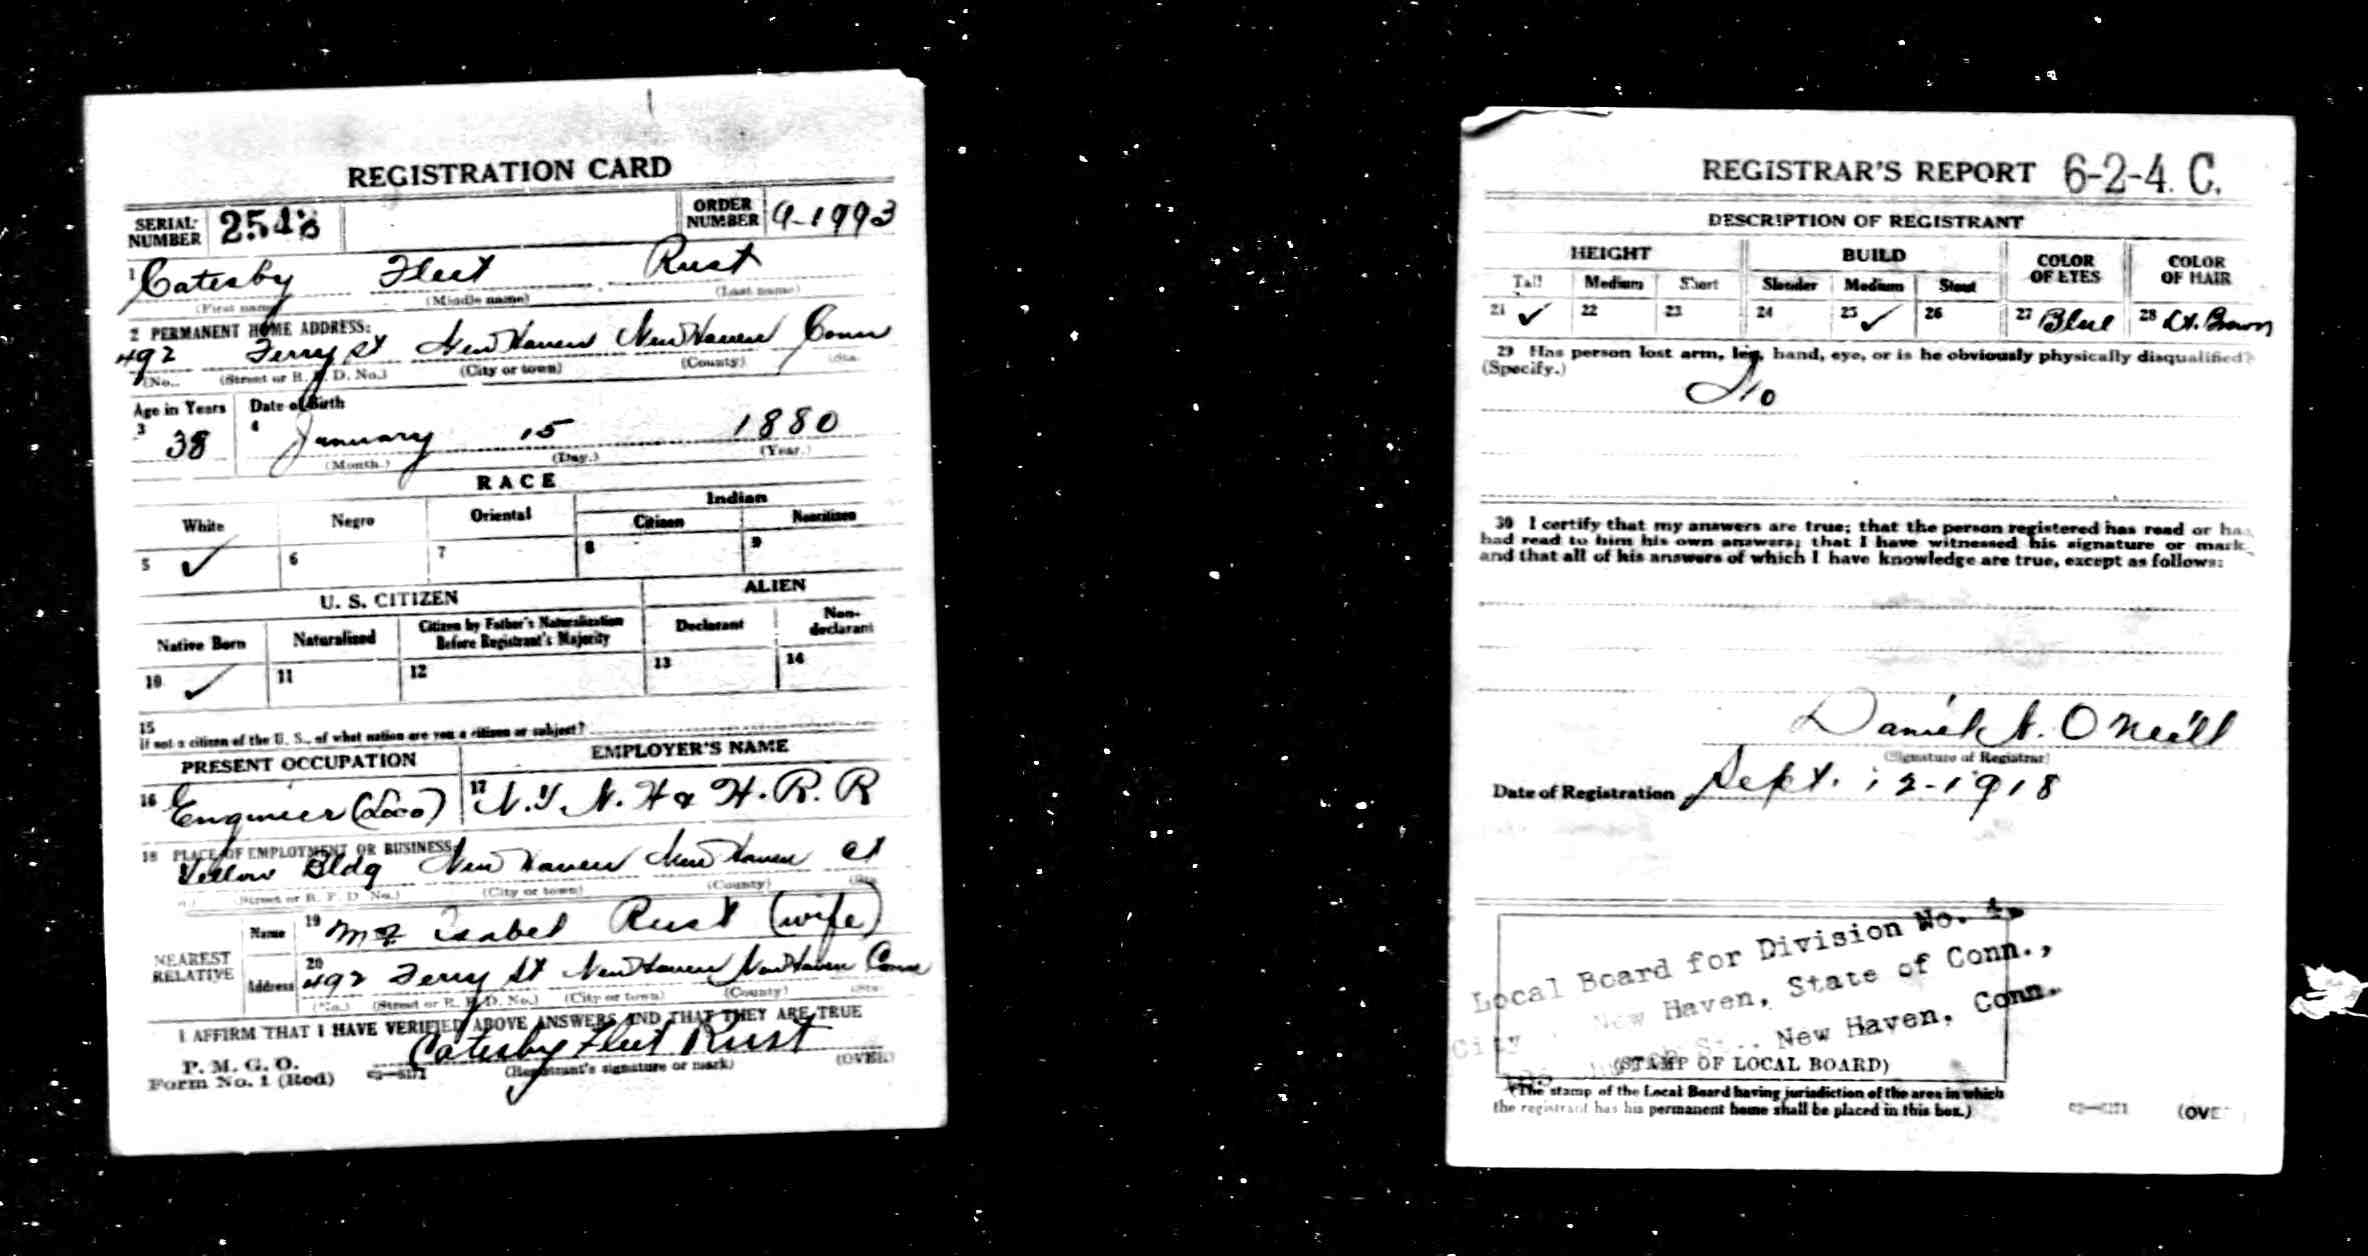 REGISTRATION CARD
SERIAL NUMBER 254 ORDER NUMBER 9-1993
1 Catesby Fleet Rust
(First name) (Middle name) (Last name)
2 PERMANENT HOME ADDRESS:
492 Ferry St New Haven New Haven Conn
(No.) (Street or R. F. D. No.) (City or town) (County) (Sta
Age in Years Date of Birth
3 38 4 January 15 1880
(Month.) (Day.) (Year.)
RACE
White Negro Oriental Indian
Citizen Noncitizen
5 ✓ 6 7 8 9
U. S. CITIZEN ALIEN
Native Born Naturalized Citizen by Father's Naturalization Before Registrant's Majority Declarant Non-declarant
10 ✓ 11 12 13 14
15
If not a citizen of the U. S., of what nation are you a citizen or subject?
PRESENT OCCUPATION EMPLOYER'S NAME
16 Engineer (Loco) 17 N. Y N. H & H. R. R
18 PLACE OF EMPLOYMENT OR BUSINESS:
Yellow Bldg New Haven New Haven Ct
(Street or R. F. D. No.) (City or town) (County) (Sta
NEAREST RELATIVE
Name 19 Isabel Rust (wife)
Address 20 492 Ferry St New Haven New Haven Conn
(No.) (Street or R. F. D. No.) (City or town) (County) (Sta
I AFFIRM THAT I HAVE VERIFIED ABOVE ANSWERS AND THAT THEY ARE TRUE
P. M. G. O.
Form No. 1 (Red) Catesby Fleet Rust
(Registrant's signature or mark) (OVER)
REGISTRAR'S REPORT 6-2-4. C.
DESCRIPTION OF REGISTRANT
HEIGHT BUILD COLOR OF EYES COLOR OF HAIR
Tall Medium Short Slender Medium Stout
21 ✓ 22 23 24 25 ✓ 26 27 Blue 28 Lt. Brown
29 Has person lost arm, leg, hand, eye, or is he obviously physically disqualified?
(Specify.)
No
30 I certify that my answers are true; that the person registered has read or has
had read to him his own answers; that I have witnessed his signature or mark,
and that all of his answers of which I have knowledge are true, except as follows:
Daniel N. O'Neill
(Signature of Registrar)
Date of Registration Sept. 12-1918
Local Board for Division No. 4,
City New Haven, State of Conn.,
New Haven, Conn.
(STAMP OF LOCAL BOARD)
(The stamp of the Local Board having jurisdiction of the area in which
the registrant has his permanent home shall be placed in this box.)
(OVE